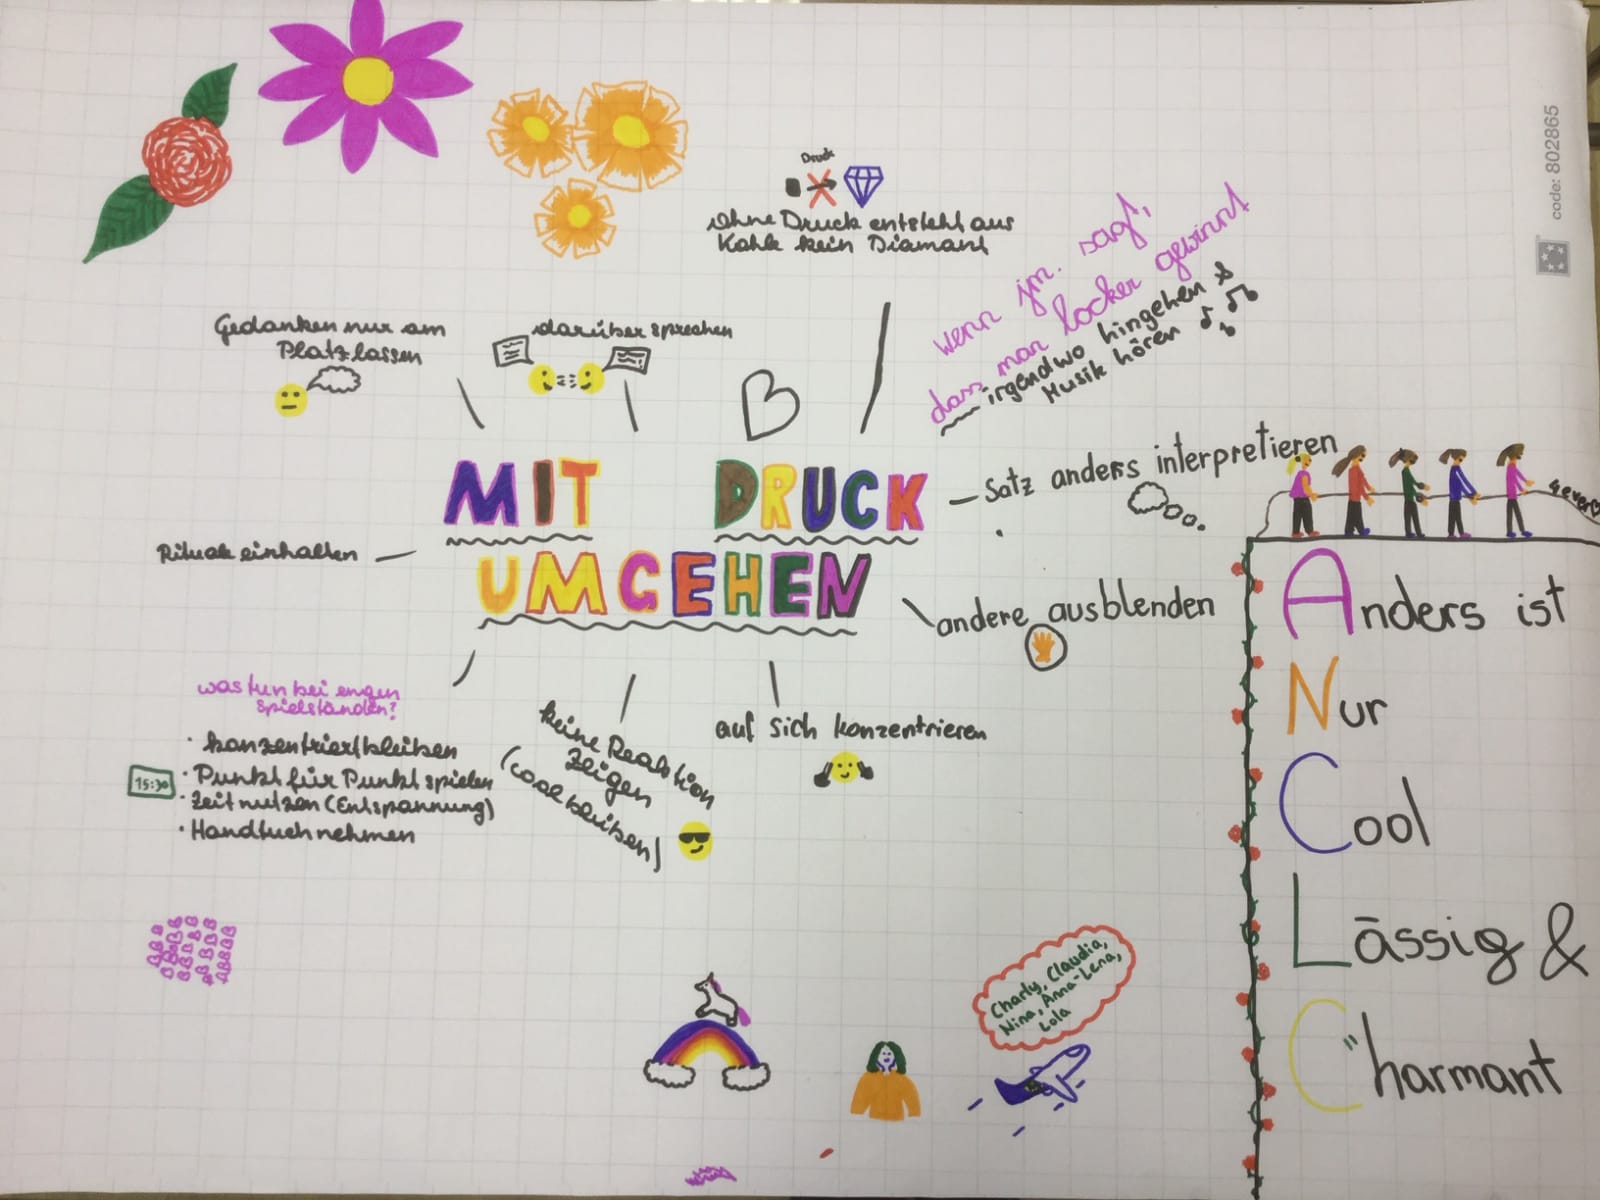 code: 802865
Druck
Ohne Druck entsteht aus
Kohle kein Diamant
wenn jm. sagt,
dass man locker gewinnt
irgendwo hingehen &
Musik hören
Gedanken nur am
Platz lassen
darüber sprechen
MIT DRUCK
UMGEHEN
Satz anders interpretieren
Rituale einhalten
andere ausblenden
4ever
was tun bei engen
Spielständen?
· konzentriert bleiben
· Punkt für Punkt spielen
15:30
· Zeit nutzen (Entspannung)
· Handtuch nehmen
keine Reaktion
zeigen
(cool bleiben)
auf sich konzentrieren
Anders ist
Nur
Cool
Lässig &
Charmant
Charly, Claudia,
Nina, Anna-Lena,
Lola